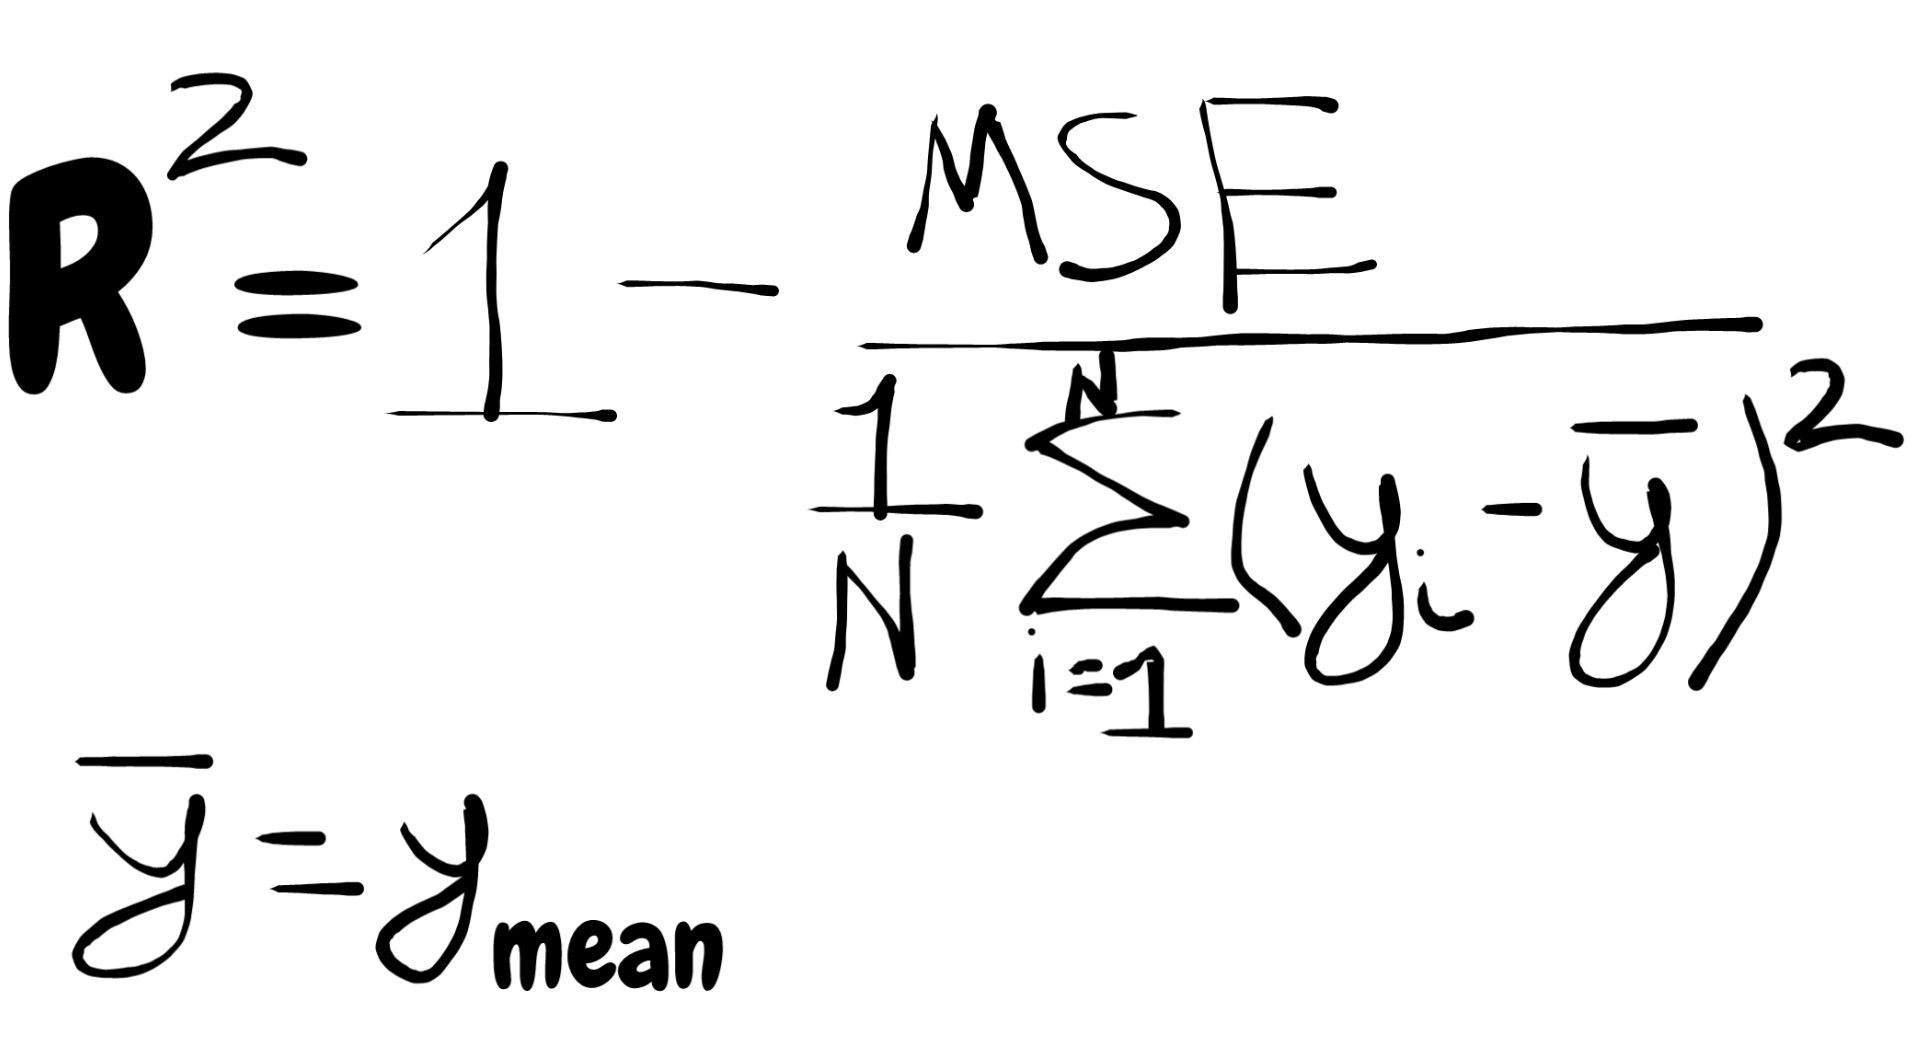 R² = 1 - MSE / (1/N ∑_{i=1}^{N} (y_i - ȳ)²)
ȳ = y_mean